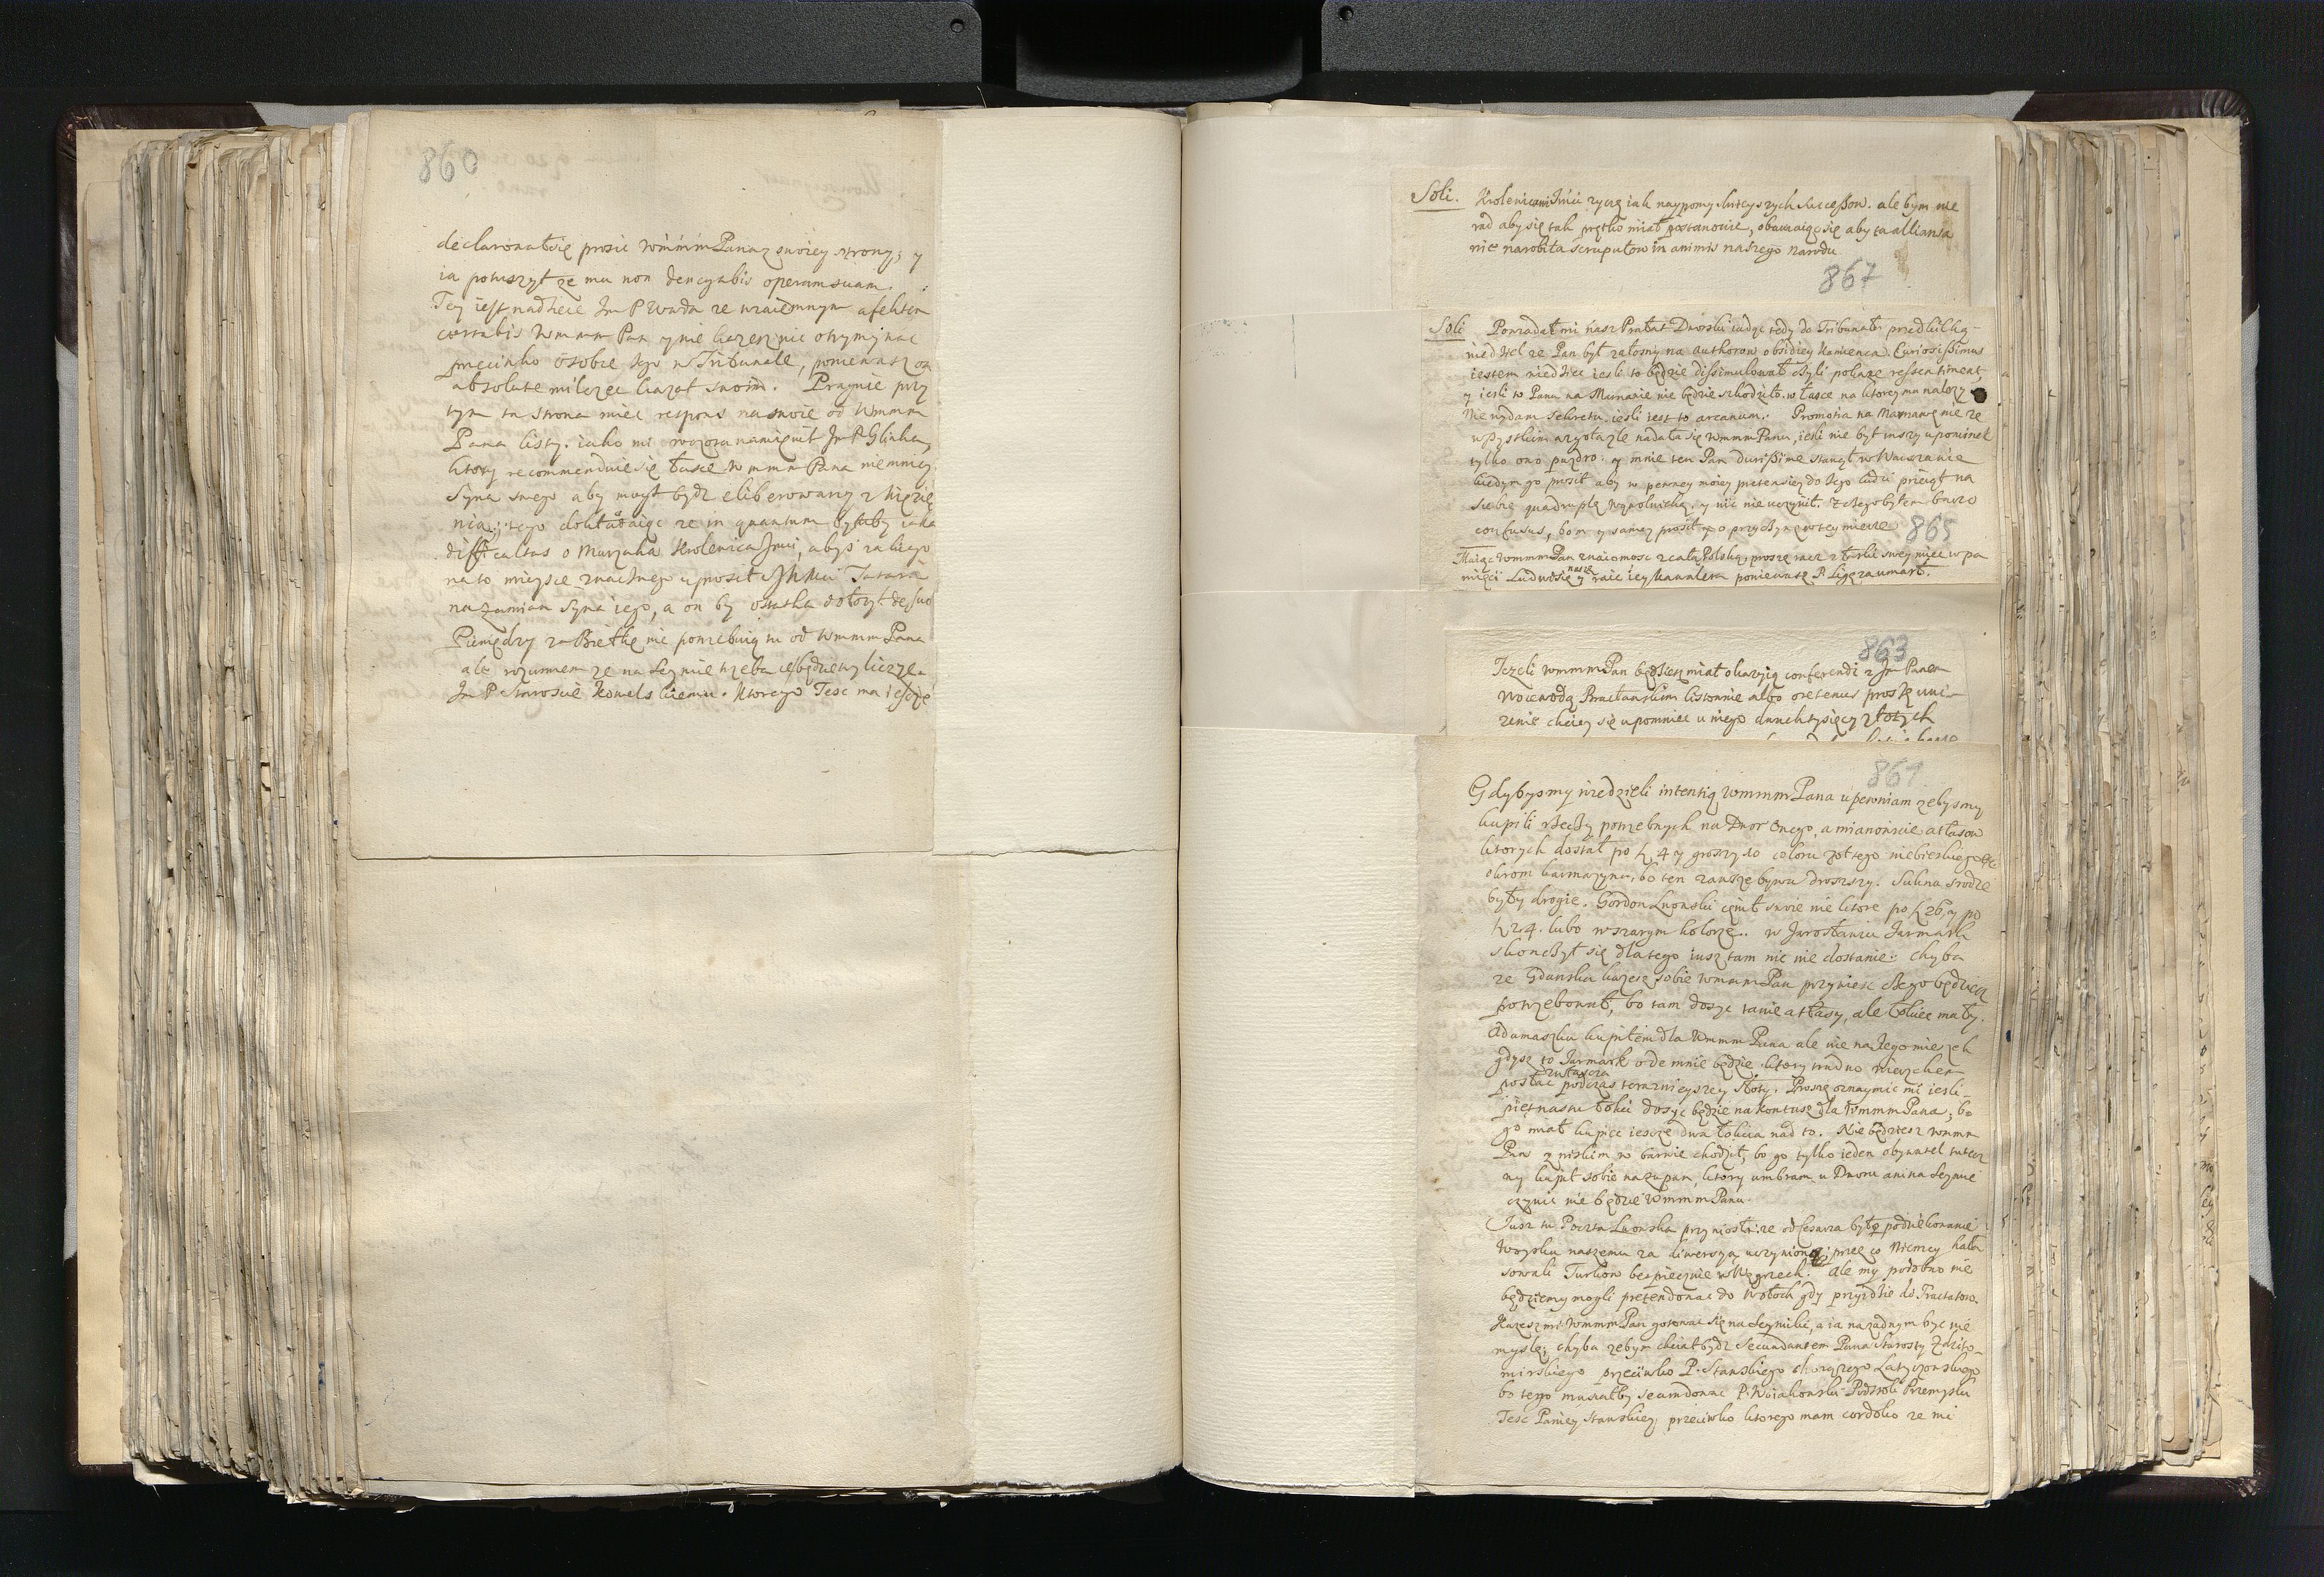 860
declarował się prosic wmmm Pana z swoiey strony, y
ia potuszył ze mu non denegabis operam suam.
Tey iest nadzieie Jm P Woda ze wzaiemnym afektem
curabis wmmm Pan y nie kazesz nic otrzymywac
przeciwko osobie Jego w Tribunale, poniewasz on
absolute milczec kazał swoim. Pragnie przy
tym ta strona miec respons na swoie od wmmm
Pana listy. iako mi wczora namienił Jm P Glinka,
ktory recommenduie się łasce wmmm Pana niemniey
Syna swego aby mogł bydz eliberowany z więzie
nia: tego dokładaiąc ze in quantum byłaby iaka
difficultas o Murzaka Krolewica Jmci, abyś takiego
na to mieysce znacznego uprosił Tatara
na zamian Syna iego, a on by ostatka dołozył de suo
Pieniędzy za Bietkę nie potrzebuią tu od wmmm Pana
ale rozumiem ze na Seymie trzeba ie będzie wyliczyc
Jm P Staroscie Kowelskiemu. Ktorego Tesc ma iescze
Soli. Krolewicowi Jmci zyczę iak naypomyslnieyszych successow. ale bym nie
rad aby się tak prętko miał postanowic, obawaiąc się aby ta allianca
nie narobiła scrupułow in animis naszego narodu
867
Soli Powiadał mi nasz Prałat Dworski iadąc tedy do Tribunału przed kilką
niedziel ze Pan był załosny na authorow obsidiey Kamienca. Curiosissimus
iestem wiedziec iesli to będzie dissimulował czyli pokaze ressentiment,
y iesli to Panu na Marnanie nie będzie szkodziło w łasce na ktorey mu nalezy
Nie wydam Sekretu, iesli iest to arcanum. Promotia na Marnanę nie ze
wszystkim nagołą zle nadała się wmmm Panu, iesli nie był inszy upominek
tylko ono puzdro: y mnie ten Pan durissime stanął w Warszawie
kiedym go prosił aby w pewney moiey pretensiey do Jego ludzi przciął na
siebie quadruplę wywolnicką, y nic nie uczynił. Z czego byłem barzo
confusus, bom y samey prosił o przyczynę w tey mierze 865
Maiąc wmmm Pan znaiomosc z całą Polską, proszę racz z łaski swey miec w pa
mięci Ludwisię naszę y raic iey kawalera poniewasz P. Ligęza umarł.
863
Jezeli wmmm Pan będziesz miał okazyią conferendi z Jm Panem
Woiewodą Bracławskim listownie albo oretenus proszę uni
zenie chciey się upomniec u niego dwuch tysięcy złotych
861
Gdybysmy wiedzieli intentią wmmm Pana upewniam zebysmy
kupili rzeczy potrzebnych na Dwor Onego, a mianowicie atłasow
ktorych dostał po ł 4 y groszy 10 coloru zołtego niebieskiego etc
okrom karmazynu, bo ten zawsze bywa droszszy. Sukna srodze
były drogie. Gordon Lwowski cenił swoie nie ktore po ł 26, y po
ł 24. lubo w szarym kolorze. w Jarosławiu Jarmark
skonczył się dlatego iusz tam nic nie dostanie: chyba
ze Gdanska kazesz sobie wmmm Pan przyniesc czego będziesz
potrzebował, bo tam dosyc tanie atłasy, ale łokiec mały.
Adamaszku kupiłem dla wmmm Pana ale nie na Jego mieszek
gdysz to Jarmark ode mnie będzie ktory trudno wierzchem
posłac podczas teraznieyszey słoty. Proszę oznaymic mi iesli
piętnastu łokci dosyc będzie na kontusz dla wmmm Pana; bo
go miał kupiec iescze dwa łokcia nad to. Nie będziesz wmmm
Pan z niskim w barwie chodził, bo go tylko ieden obywatel tutecz
ny kupił sobie na zupan, ktory umbram u Dworu ani na Seymie
czynic nie będzie wmmm Panu.
Jusz tu Poczta Lwowska przyniosła: ze od Cesarza było podziękowanie
Woysku naszemu za diwersyą uczynioną; przez co Niemcy hała
sowali Turkow bespiecznie w Węgrzech: Ale my podobno nie
będziemy mogli pretendowac do Wołoch gdy przyidzie do Tractatow.
Kazesz mi wmmm Pan gotowac się na Seymiki, a ia na zadnym byc nie
myslę; chyba zebym chciał bydz Secundantem Pana Starosty Zdzito-
mirskiego przeciwko P. Stanskiego chorązego Latyczowskiego
bo tego musiałby secundowac P. Woiakowski Podstoli Przemyski
Tesc Paniey Stanskiey, przeciwko ktorego mam cordolio ze mi